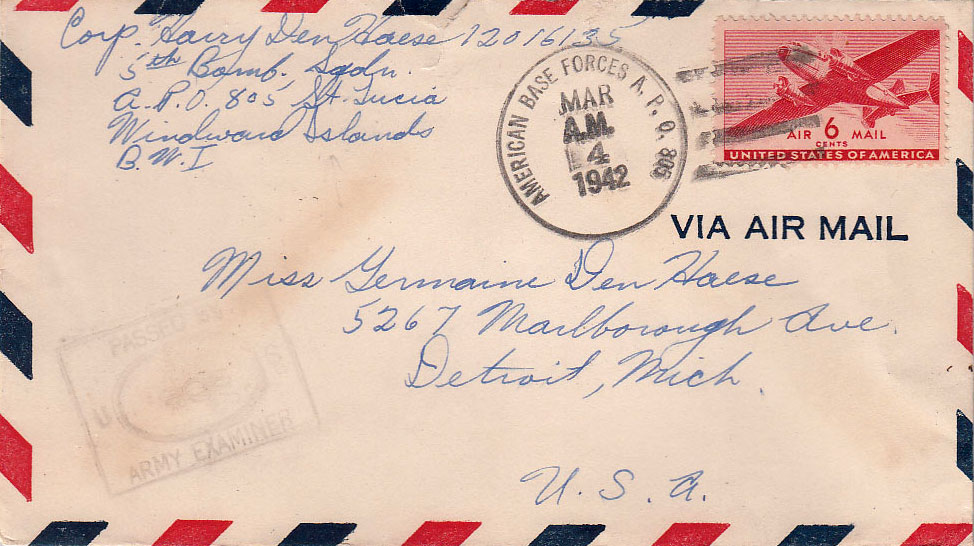 Corp. Harry Den Haese 12016135
5th Bomb. Sqdn.
A.P.O. 805 St. Lucia
Windward Islands
B.W.I
AMERICAN BASE FORCES A.P.O. 805
MAR
A.M.
4
1942
AIR 6 MAIL
CENTS
UNITED STATES OF AMERICA
VIA AIR MAIL
Miss Germaine Den Haese
5267 Marlborough Ave.
Detroit, Mich.
U.S.A.
PASSED
U.
ARMY EXAMINER